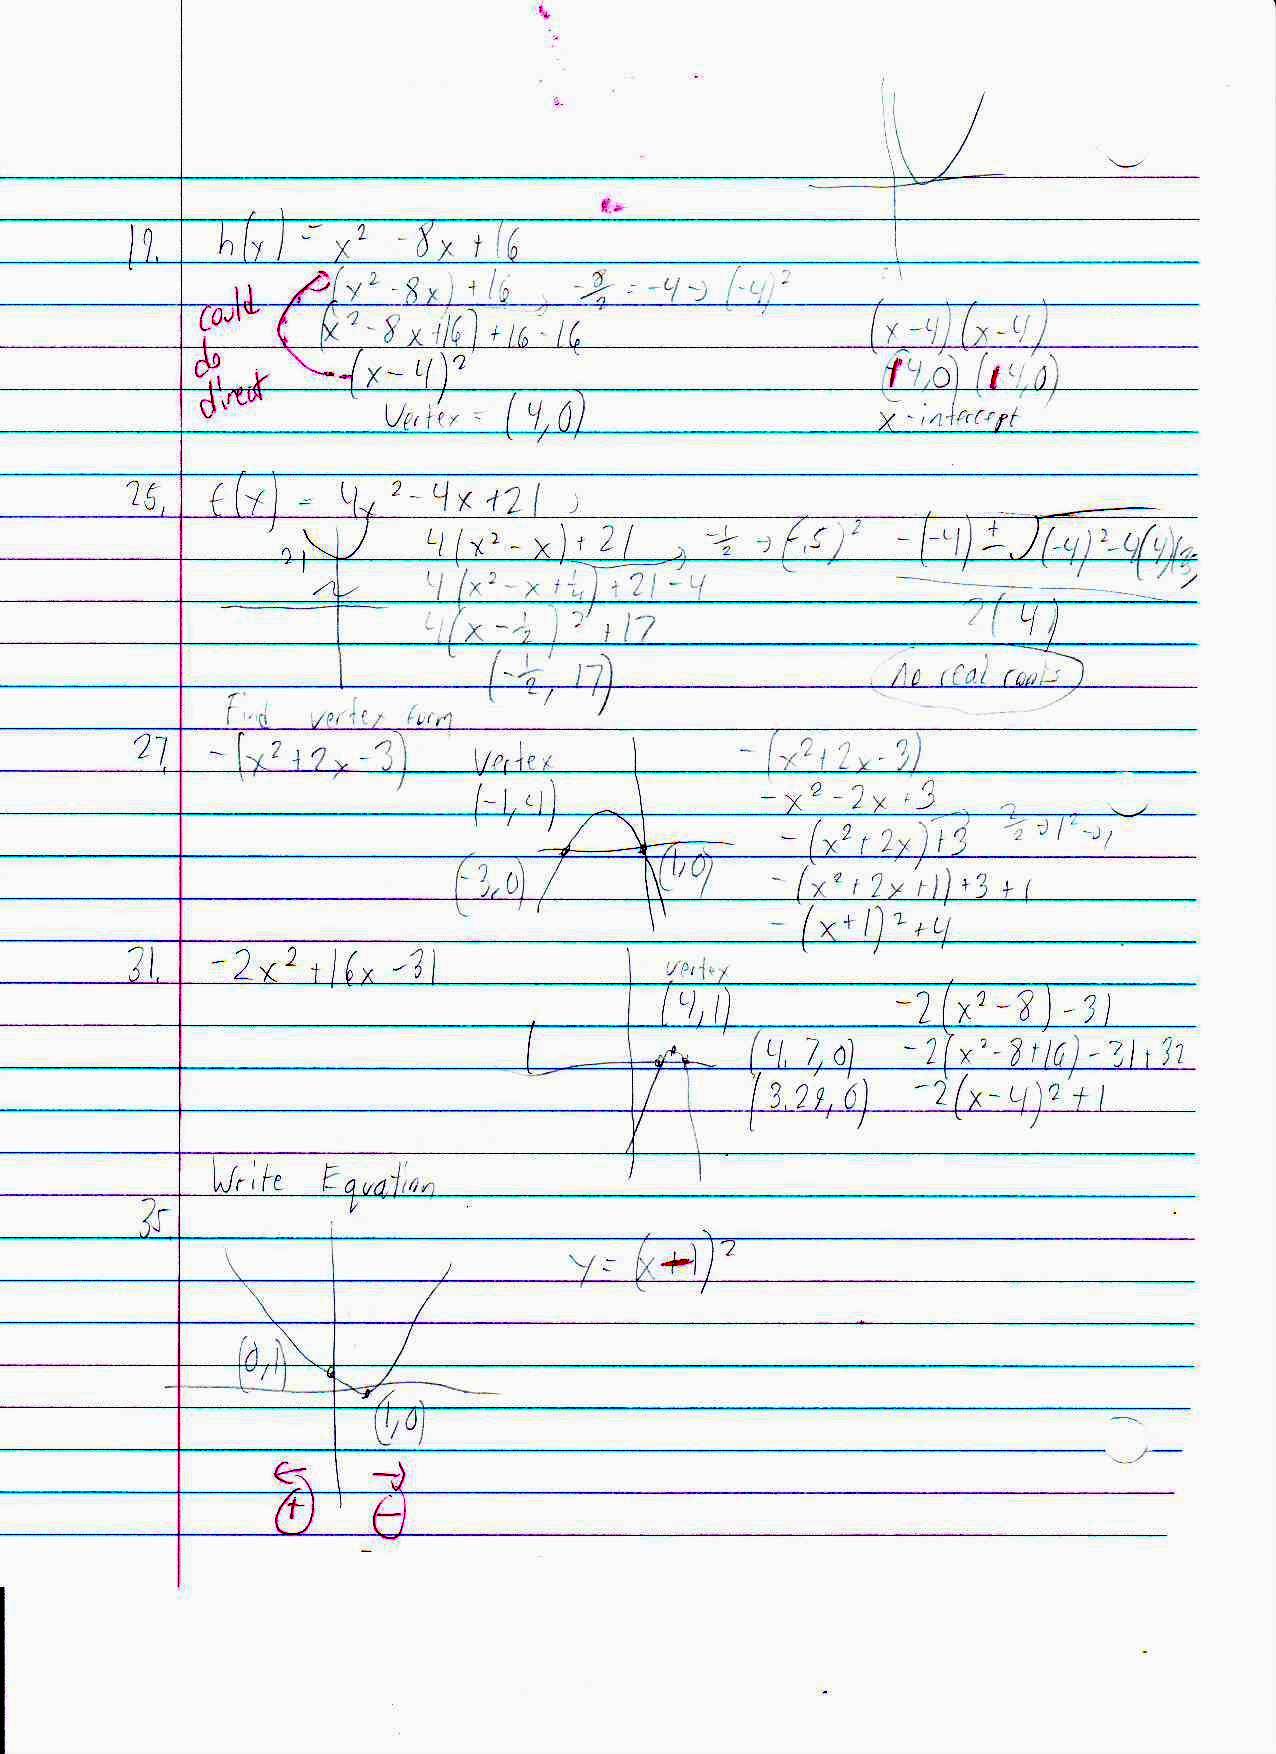 19. h(x) = x² - 8x + 16
(x² - 8x) + 16, -8/2 = -4 → (-4)²
could do direct
(x² - 8x + 16) + 16 - 16
(x - 4)²
Vertex = (4, 0)
(x-4)(x-4)
(4,0) (4,0)
x-intercept
25. f(x) = 4x² - 4x + 21,
21
4(x² - x) + 21, -1/2 → (-.5)²
4(x² - x + 1/4) + 21 - 4
4(x - 1/2)² + 17
(-1/2, 17)
-(-4) ± √(-4)² - 4(4)(
2(4)
no real roots
Find vertex form
27. -(x² + 2x - 3)
vertex
(-1, 4)
(-3, 0)
(1, 0)
-(x² + 2x - 3)
-x² - 2x + 3
-(x² + 2x) + 3 2/2 → 1² → 1
-(x² + 2x + 1) + 3 + 1
-(x + 1)² + 4
31. -2x² + 16x - 31
vertex
(4, 1)
(4.7, 0)
(3.29, 0)
-2(x² - 8) - 31
-2(x² - 8 + 16) - 31 + 32
-2(x - 4)² + 1
Write Equation
35
y = (x - 1)²
(0, 1)
(1, 0)
← →
+ -